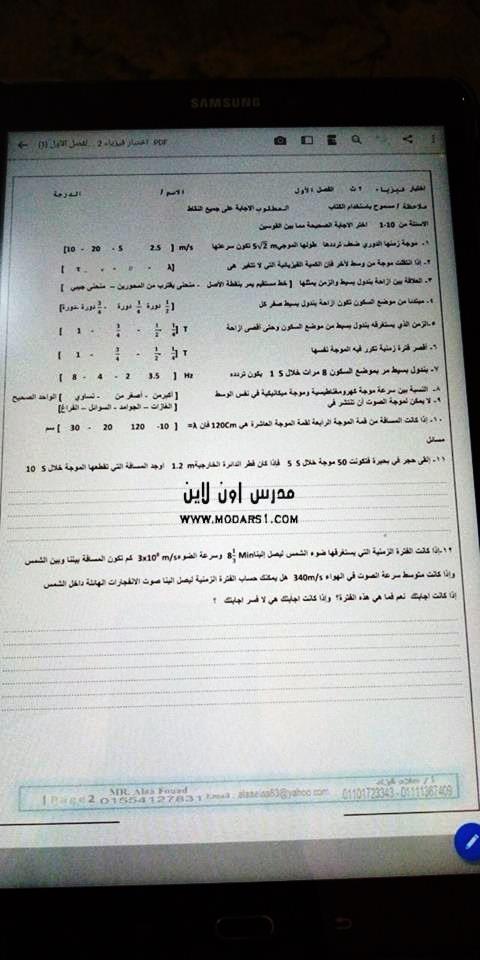 SAMSUNG
اختبار فيزياء 2 ...لفصل الأول (1) .PDF
اختبار فيزياء 2 ث الفصل الأول الاسم / الدرجة
ملاحظة / مسموح باستخدام الكتاب المطلوب الاجابة على جميع النقاط
الاسئلة من 10-1 اختر الاجابة الصحيحة مما بين القوسين
١- موجة زمنها الدوري ضعف ترددها طولها الموجي 5√2 m تكون سرعتها m/s [10 - 20 - 5 2.5 ]
٢- إذا انتقلت موجة من وسط لآخر فإن الكمية الفيزيائية التي لا تتغير هي
٣- العلاقة بين ازاحة بندول بسيط والزمن يمثلها [ خط مستقيم يمر بنقطة الأصل - منحنى يقترب من المحورين – منحنى جيبي ]
٤- مبتدئا من موضع السكون تكون ازاحة بندول بسيط صفر كل [1/2 دورة 1/4 دورة - 3/4 دورة -دورة]
٥-الزمن الذي يستغرقه بندول بسيط من موضع السكون وحتى أقصى ازاحة T [ 1 - 3/4 - 1/2 - 1/4 ]
٦- أقصر فترة زمنية تكرر فيه الموجة نفسها T [ 1 - 3/4 - 1/2 - 1/4 ]
٧- بندول بسيط مر بموضع السكون 8 مرات خلال 1 S يكون تردده Hz [ 8 - 4 - 2 3.5 ]
٨- النسبة بين سرعة موجة كهرومغناطيسية وموجة ميكانيكية في نفس الوسط [ أكبرمن - أصغر من - تساوي ] الواحد الصحيح
٩- لا يمكن لموجة الصوت أن تنتشر في [ الغازات – الجوامد – السوائل – الفراغ]
١٠- إذا كانت المسافة من قمة الموجة الرابعة لقمة الموجة العاشرة هي 120Cm فان λ= [ 30 - 20 120 10- ] سم
مسائل
١١- القى حجر في بحيرة فتكونت 50 موجة خلال 5 S فإذا كان قطر الدائرة الخارجية 1.2 m اوجد المسافة التي تقطعها الموجة خلال 10 S
مدرس اون لاين
WWW.MODARS1.COM
١٢-إذا كانت الفترة الزمنية التي يستغرقها ضوء الشمس ليصل إلينا 8 1/3 Min وسرعة الضوء 3x10⁸ m/s كم تكون المسافة بيننا وبين الشمس
وإذا كانت متوسط سرعة الصوت في الهواء 340m/s هل يمكنك حساب الفترة الزمنية ليصل الينا صوت الانفجارات الهائلة داخل الشمس
إذا كانت اجابتك نعم فما هي هذه الفترة؟ وإذا كانت اجابتك هي لا فسر اجابتك ؟
MR. Alaa Fouad
| Page2 01554127831 Email . alaaelaa83@yahoo.com 01101723343 - 01111367409